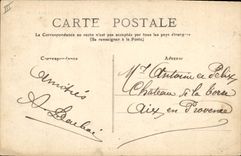 CARTE POSTALE
La Correspondance au recto n'est pas acceptée par tous les pays étrangers
(Se renseigner à la Poste)
Correspondance
Adresse
amitiés
A.
Mr Antoine de
Chateau de la
Aix en Provence